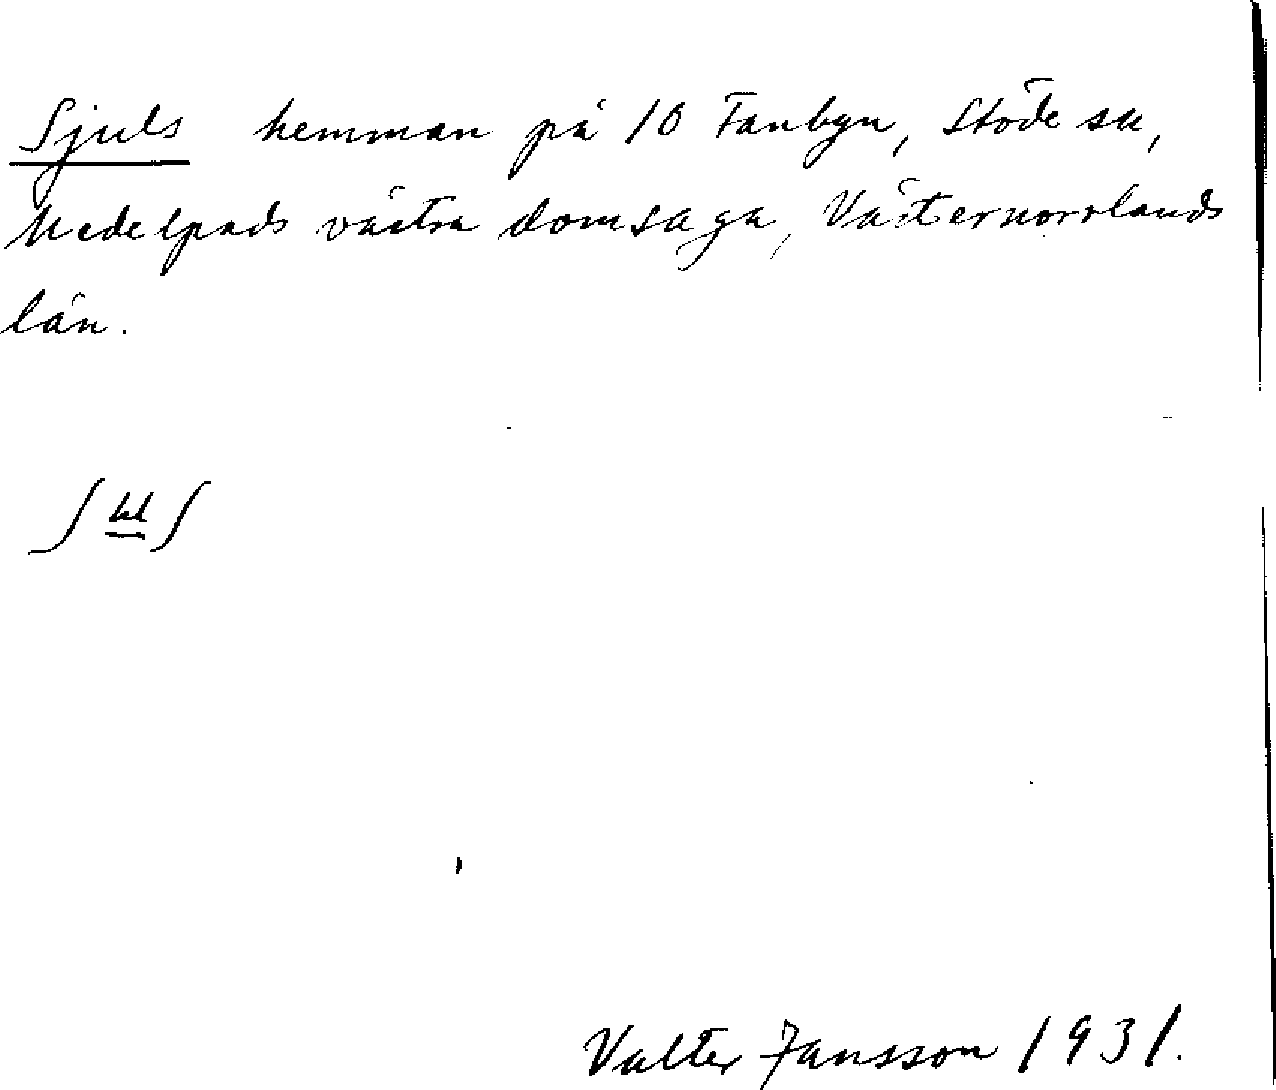 Sjuls hemman på 10 Fanbyn, Stöde sn,
Medelpads västra domsaga, Västernorrlands
län.
Valter Jansson 1931.